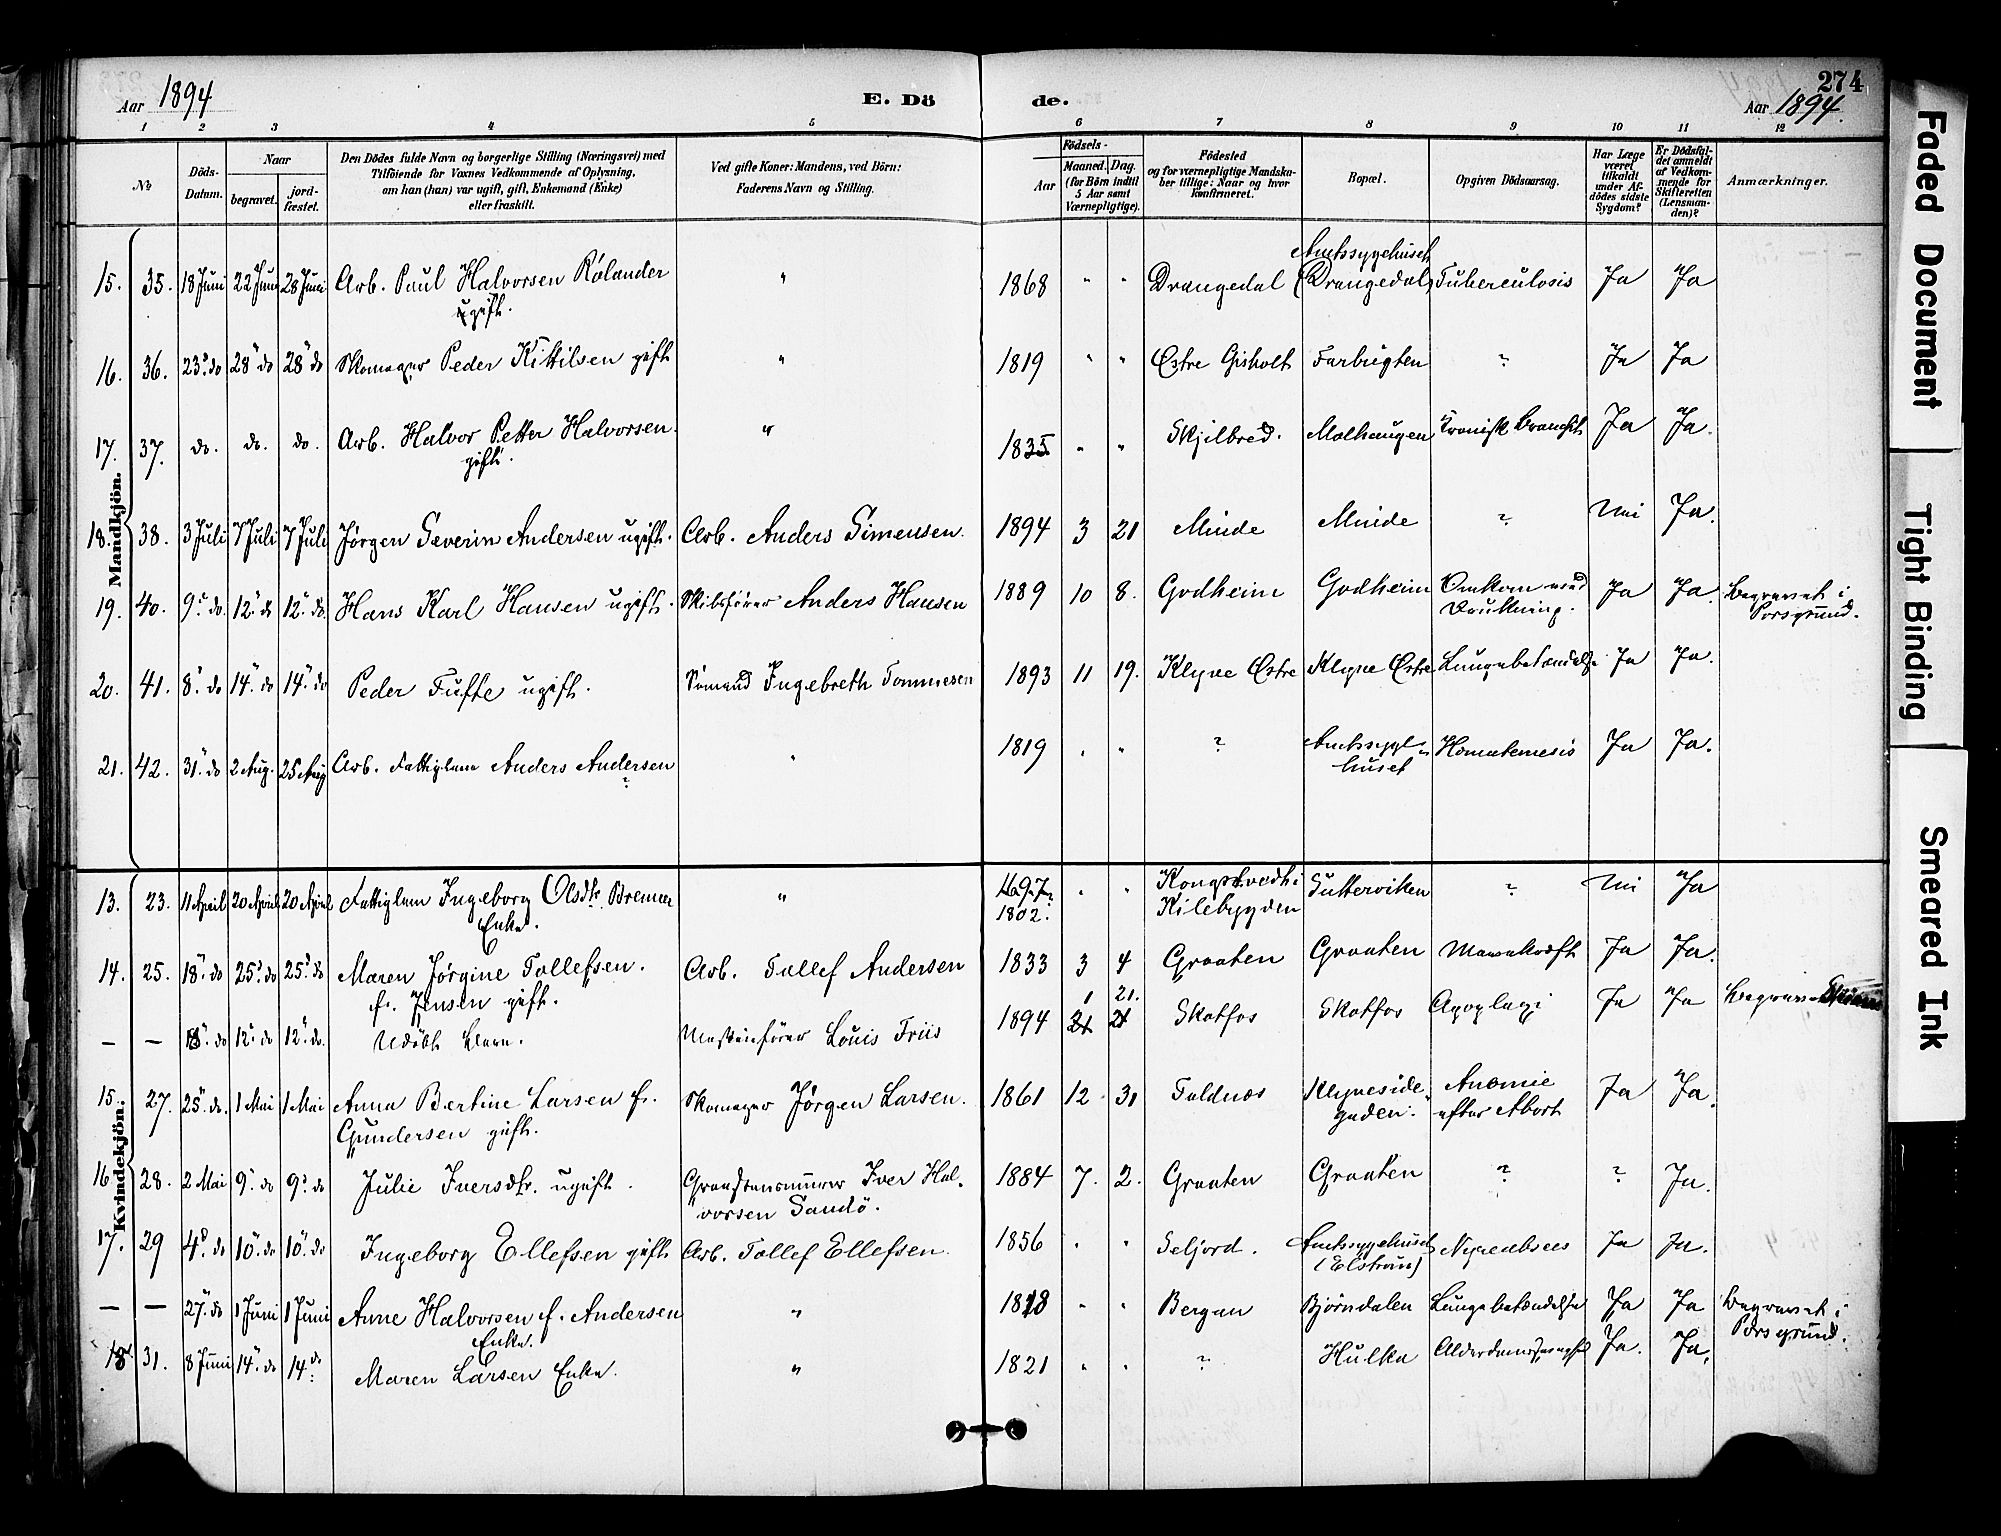 274
Aar 1894
E. Dö
de.
Aar 1894.
1 2 3 4 5 6 7 8 9 10 11 12
No
Döds-
Datum.
Naar
begravet.
jord-
fæstet.
Den Dödes fulde Navn og borgerlige Stilling (Næringsvei) med
Tilföiende for Voxnes Vedkommende af Oplysning,
om han (hun) var ugift, gift, Enkemand (Enke)
eller fraskilt.
Ved gifte Koner: Mandens, ved Börn:
Faderens Navn og Stilling.
Födsels-
Aar
Maaned. Dag.
(for Börn indtil
5 Aar samt
Værnepligtige).
Födested
og for værnepligtige Mandska-
ber tillige: Naar og hvor
konfirmeret.
Bopæl.
Opgiven Dödsaarsag.
Har Læge
været
tilkaldt
under Af-
dödes sidste
Sygdom?
Er Dödsfal-
det anmeldt
af Vedkom-
mende for
Skifteretten
(Lensman-
den)?
Anmærkninger.
Mandkjön.
15. 35. 18 Juni 22 Juni 28 Juni Arb. Paul Halvorsen Rölander " 1868 " " Drangedal Amtssygehuset Tuberculosis Ja Ja
ugift. (Drangedal)
16. 36. 23. do 28 do 28 do Skomager Peder Kittilsen gift " 1819 " " Østre Gisholt Farbrigten ? Ja Ja
17. 37. do. do. do. Arb. Halvor Petter Halvorsen " 1835 " " Skjilbred. Molhaugen Kronisk Bronchit Ja Ja.
gift.
18. 38. 3 Juli 7 Juli 7 Juli Jørgen Severin Andersen ugift. Arb. Anders Simensen. 1894 3 21 Minde Minde ? Nei Ja.
19. 40. 9. do. 12. do 12. do. Hans Karl Hansen ugift. Skibsfører Anders Hansen 1889 10 8. Godheim Godheim Omkom ved Ja Ja. Begravet i
Drukning. Porsgrund.
20. 41. 8. do 14. do 14. do Peder Tufte ugift. Sømand Ingebreth Tommesen 1893 11 19. Klyve Østre Klyve Østre Lungebetændelse Ja Ja.
21. 42. 31. do 2 Aug. 25 Aug Arb. Fattiglem Anders Andersen " 1819 " " ? Amtssyge- Homatemesis Ja Ja.
? huset
Kvindekjön.
13. 23. 11 April 20 April 20 April Fattiglem Ingeborg Olsdtr. " 1797 " " i ? Nei Ja
Enke. 1802. Kilebygden
14. 25. 18. do 25. do 25. do Maren Jørgine Tollefsen. Arb. Tollef Andersen 1833 3 4 Graaten Graaten Mavekræft Ja Ja.
f. Jensen gift.
— — 8. do 12. do 12. do. Udøbt Barn. Maskinfører Louis Friis 1894 1 21. Skotfos Skotfos Apoplexi Ja Ja Begravet Skien
15. 27. 25. do. 1 Mai 1 Mai Anna Bertine Larsen f. Skomager Jørgen Larsen. 1861 12 31 Faldnæs Klyveside- Anæmie Ja Ja.
Gundersen gift. gaden. efter Abort
16 28. 2 Mai 9. do 9. do Julie Iversdtr. ugift. Iver Hal- 1884 7. 2. Graaten Graaten ? ? Ja.
vorsen Sandö.
17. 29 4. do 10. do 10. do Ingeborg Ellefsen gift Arb. Tollef Ellefsen. 1856 " " Seljord. Amtssygehuset Nyreabsces Ja Ja.
(Elstrøm)
— — 27. do 1 Juni 1 Juni Anne Halvorsen f. Andersen " 1818 " " Bergan Bjørndalen Lungebetændelse Ja Ja Begravet i
Enke. Porsgrund.
18. 31. 8 Juni 14. do 14 do. Maren Larsen Enke. " 1821 " " ? Hulka Ja. Ja.
Faded Document
Tight Binding
Smeared Ink